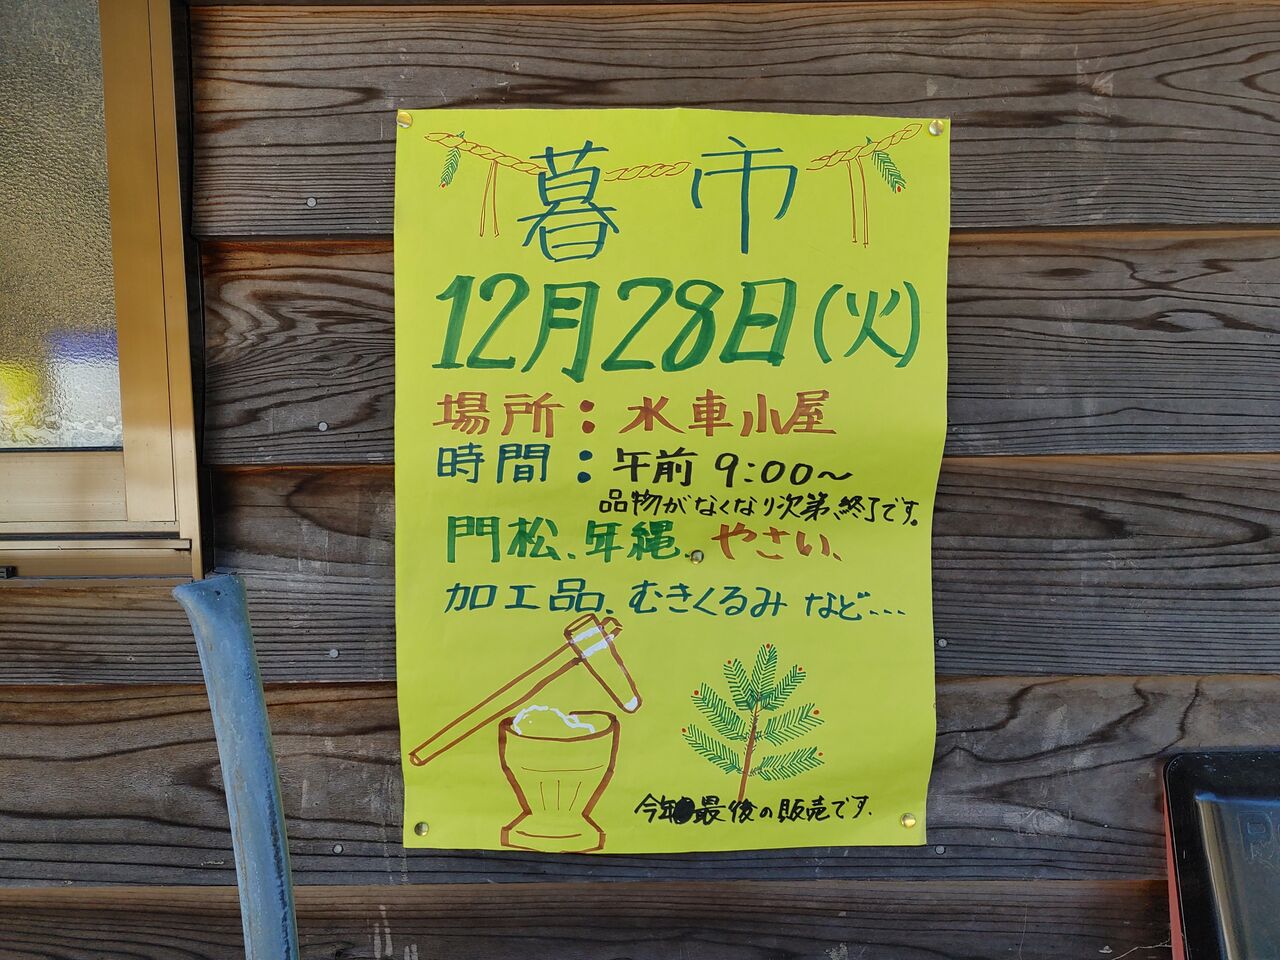 暮市
12月28日(火)
場所：水車小屋
時間：午前 9:00～
品物がなくなり次第、終了です。
門松、年縄、やさい、
加工品、むきくるみ など…
今年最後の販売です.